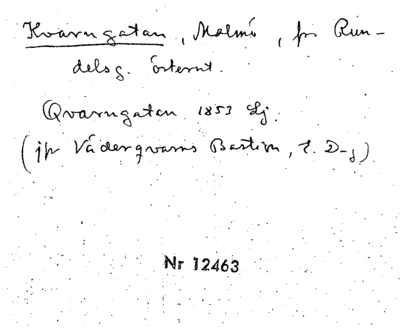 Kvarngatan, Malmö, fr Run-
delsg. österut.
Qvarngatan 1853 Lj.
(jfr Väderqvarns Bastion, s. D-g)
Nr 12463